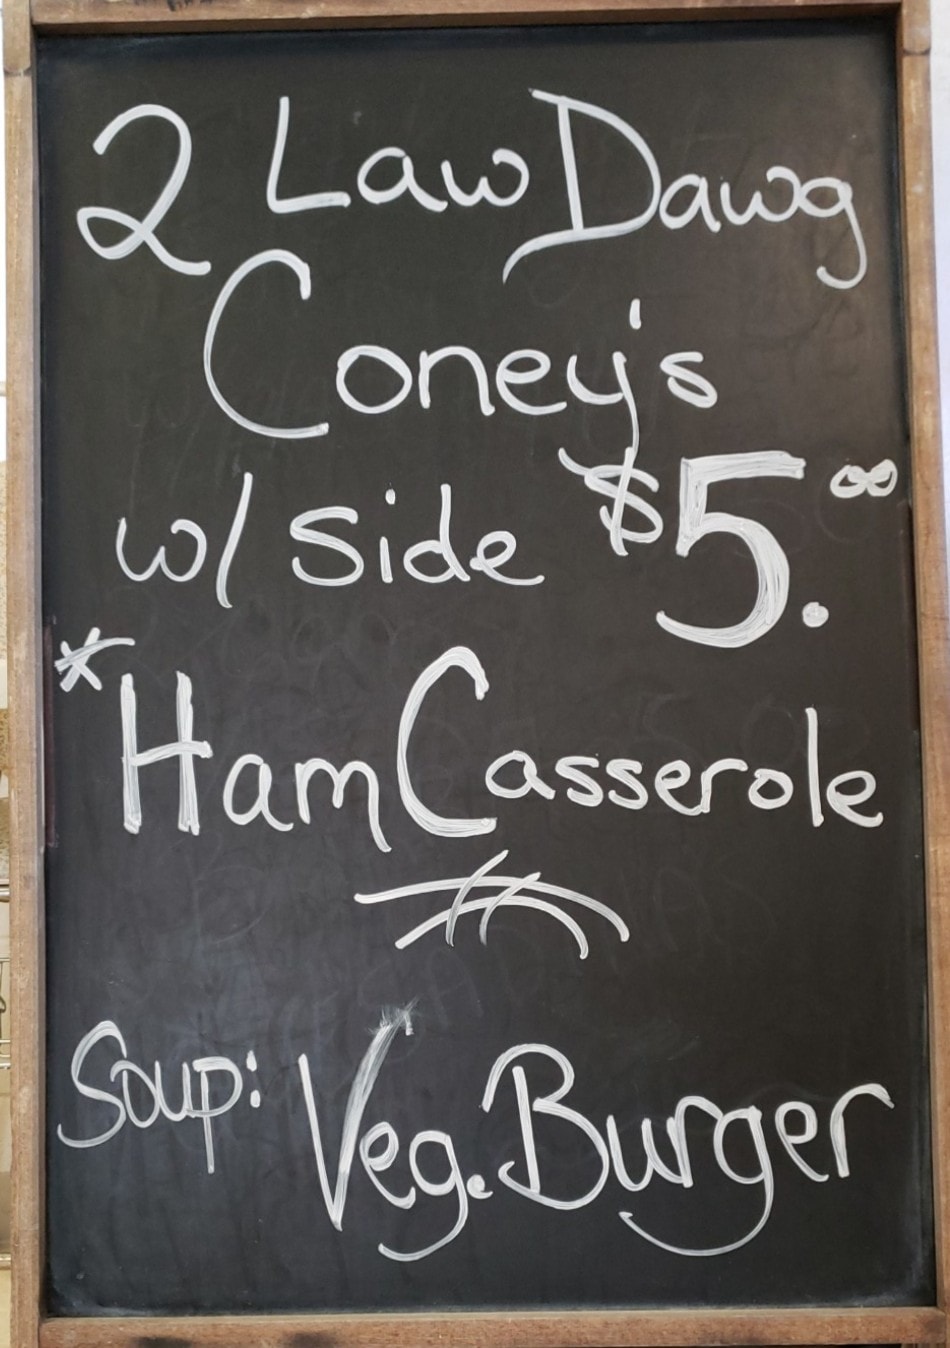 2 Law Dawg
Coney's
w/ Side $5.00
*Ham Casserole
Soup: Veg. Burger